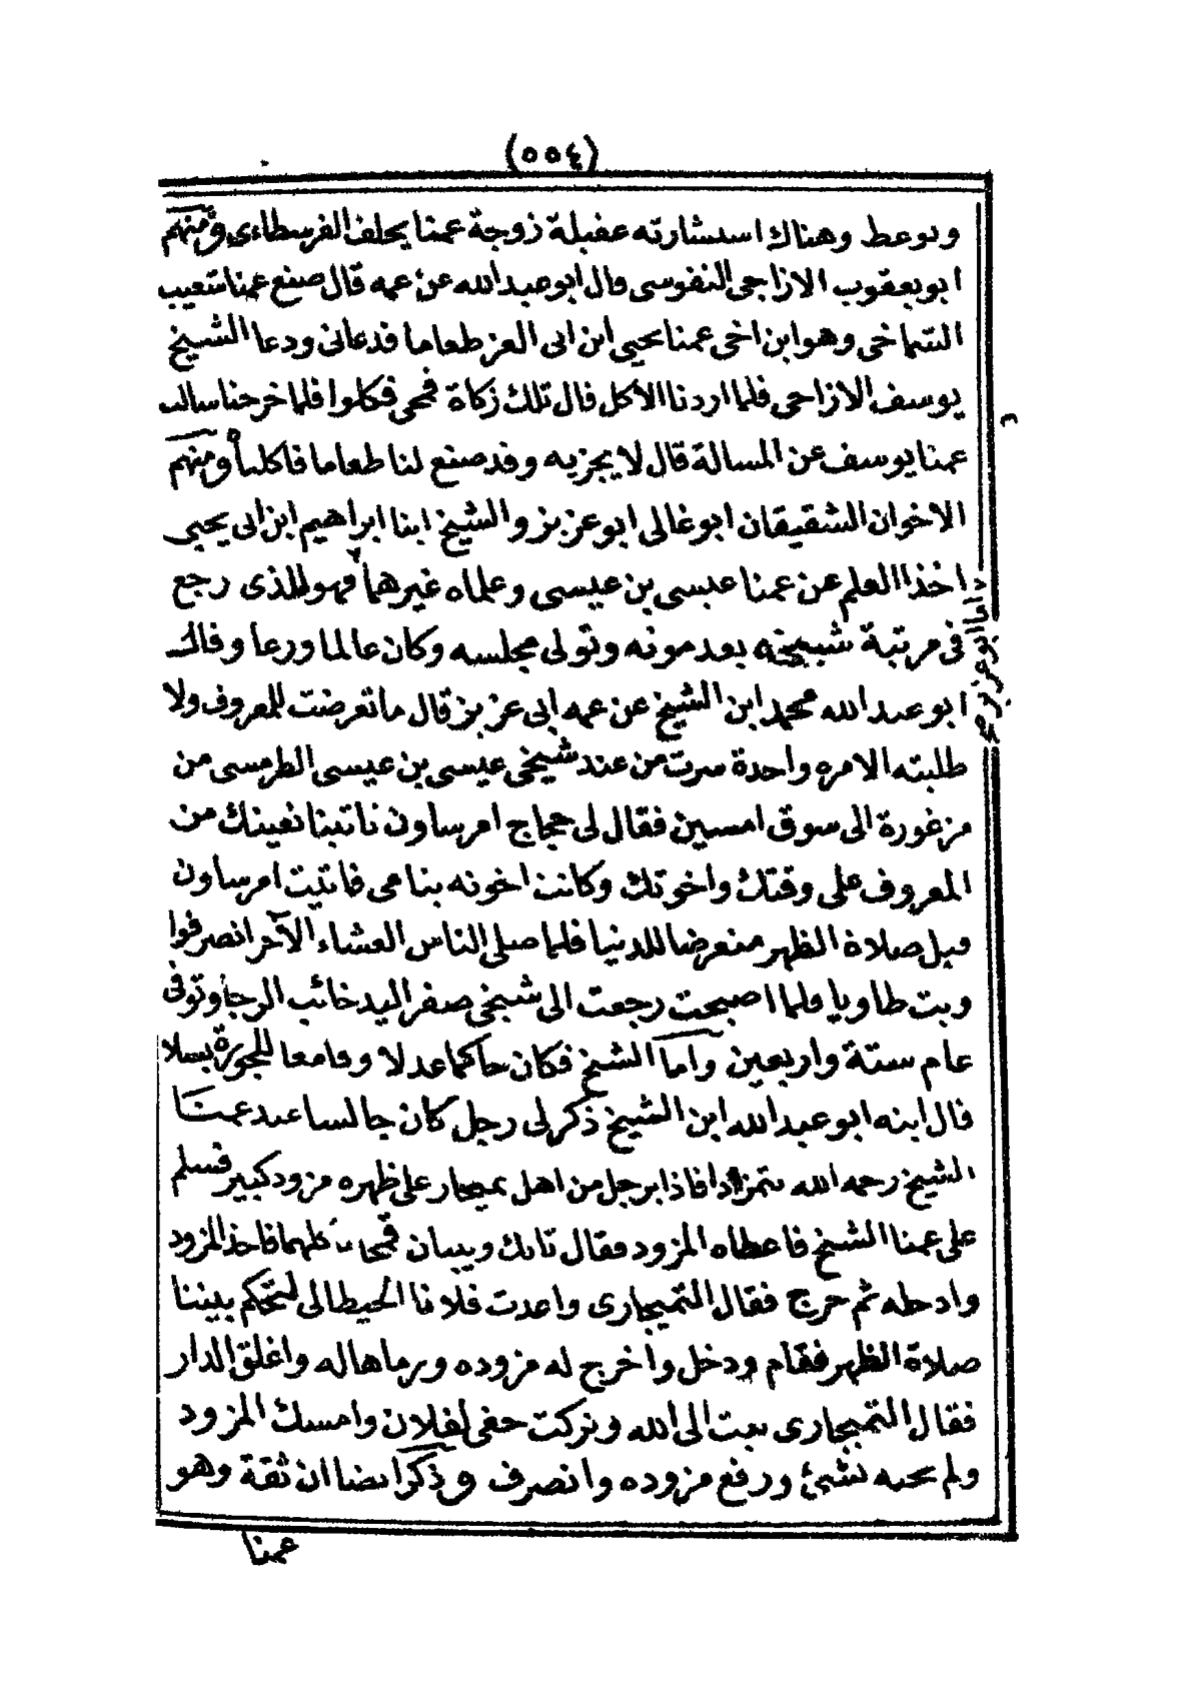 (٥٥٤)
ويوعظ وهناك استشارته عقيلة زوجة عمنا يخلف الفرسطاءى ومنهم
ابو يعقوب الازاجى النفوسى وال ابو عبد الله عن عمه قال صنع عمنا شعيب
التماخى وهو ابن اخى عمنا يحيى ابن ابى العز طعاما فدعانى ودعا الشيخ
يوسف الازاجى فلما اردنا الاكل قال تلك زكاة قمحى فكلوا فلما خرجنا سالت
عمنا يوسف عن المسالة قال لا يجزيه وقد صنع لنا طعاما فاكلنا ومنهم
الاخوان الشقيقان ابو غالى ابو عزيز والشيخ ابنا ابراهيم ابن ابى يحيى
اخذا العلم عن عمنا عيسى بن عيسى وعلماه غيرهما فهو الذى رجع
فى مرتبة شيخه بعد موته وتولى مجلسه وكان عالما ورعا وقال
ابو عبد الله محمد ابن الشيخ عن عمه ابى عزيز قال ما تعرضت للمعروف ولا
طلبته الا مره واحدة سرت من عند شيخى عيسى بن عيسى الطرمسى من
مزغورة الى سوق امسين فقال لى حجاج امرساون ناتينا نعينك من
المعروف على وقتك واخوتك وكانت اخوته بنامى فاتيت امرساون
قبل صلاة الظهر متعرضا للدنيا فلما صلى الناس العشاء الآخر انصرفوا
وبت طاويا فلما اصبحت رجعت الى شيخى صفر اليد خائب الرجا وتوفى
عام ستة واربعين واما الشيخ فكان حاكما عدلا وقامعا للجورة بسلا
قال ابنه ابو عبد الله ابن الشيخ ذكر لى رجل كان جالسا عند عمنا
الشيخ رحمه الله فاذا برجل من اهل تميجار على ظهره مزود كبير فسلم
على عمنا الشيخ فاعطاه المزود فقال تانك ويبيان قمحا كلهما فاخذ المزود
وادخله ثم خرج فقال التميجارى واعدت فلانا الحيطالى لتحكم بيننا
صلاة الظهر فقام ودخل واخرج له مزوده ورماها له واغلق الدار
فقال التميجارى تبت الى الله وتركت حقى لفلان وامسك المزود
ولم يجبه بشئ ورفع مزوده وانصرف وذكر ايضا ان ثقة وهو
عمنا
اما ابو عزيز صح